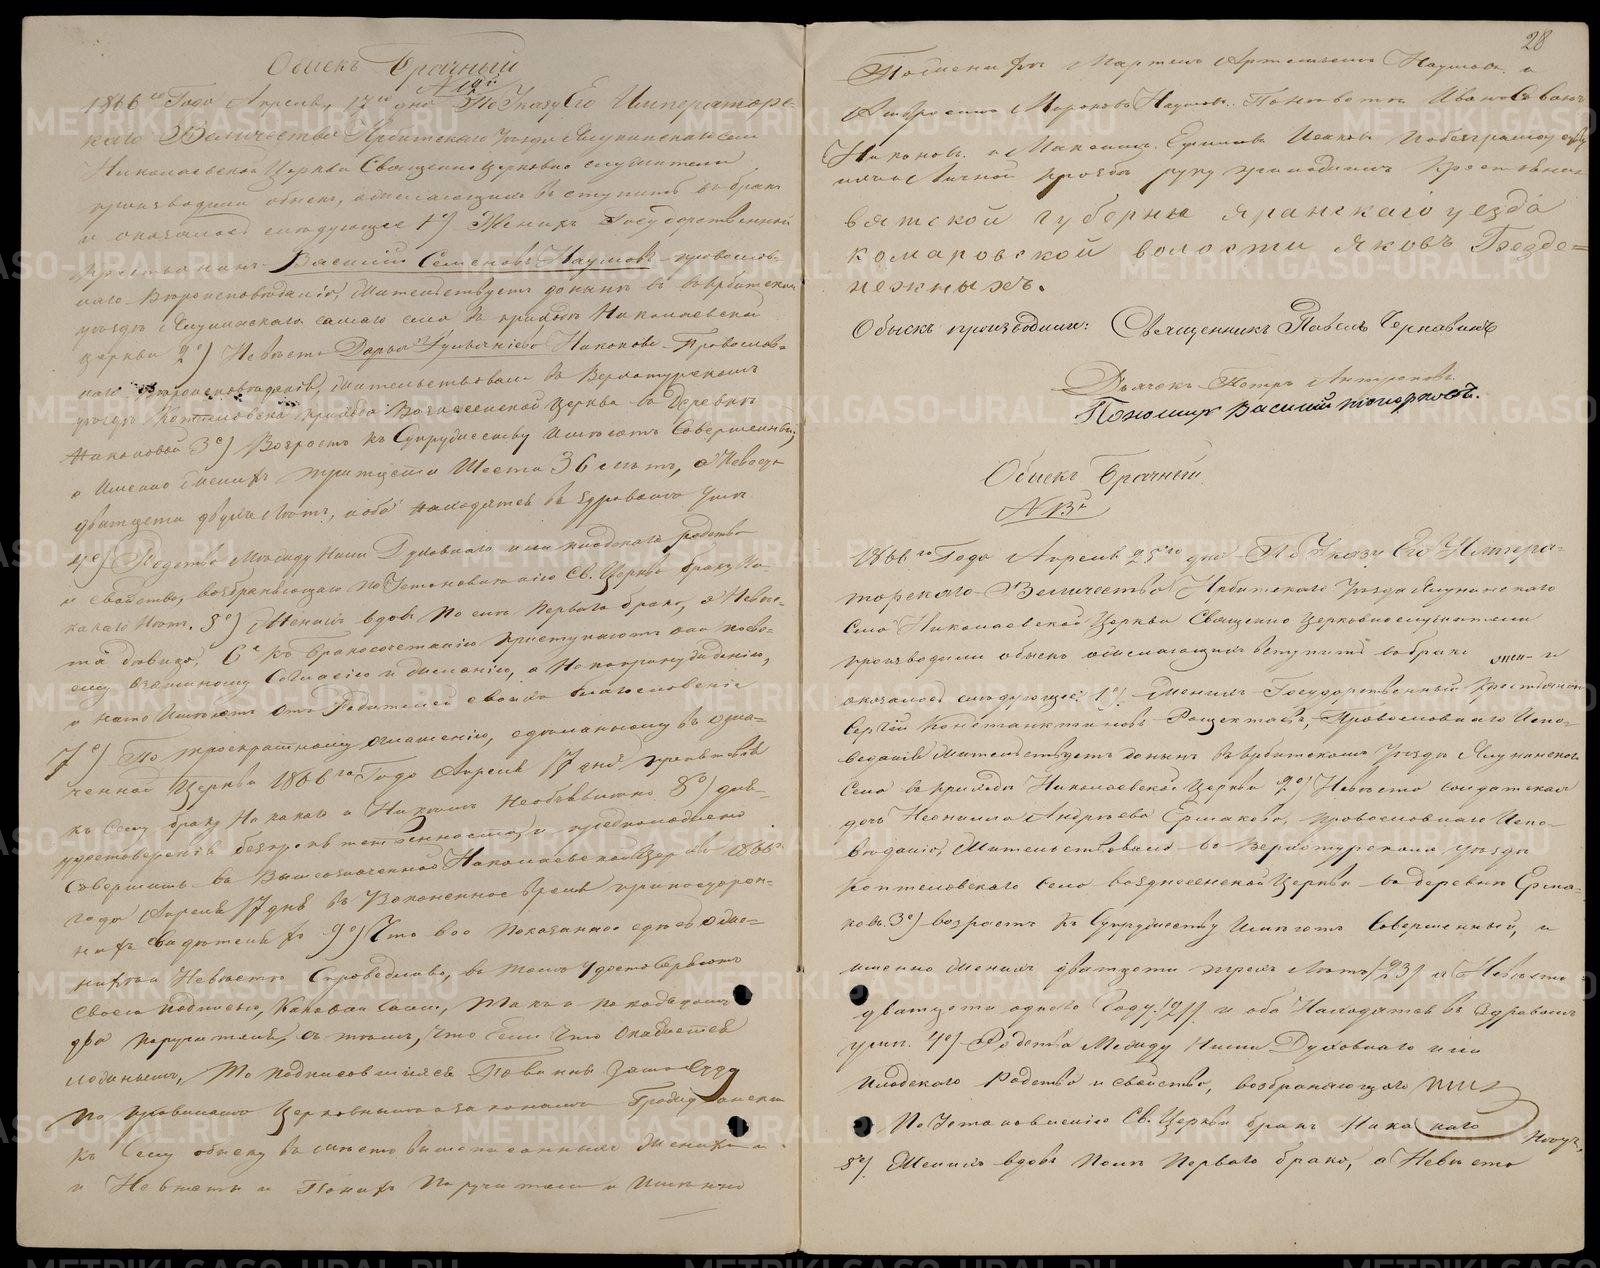 Обыскъ Брачный
№ 12й
1866го Года Апреля, 17го дня По Указу Его Императорс-
каго Величества Ирбитскаго Уезда села
Николаевской Церкви Священно церковно служители
производили обыскъ, о желающихъ вступить въ бракъ
и оказалось следующее 1е) Женихъ Государственный
крестьянинъ Василий Семеновъ Наумовъ православ-
наго Вероисповедания, Жительствуетъ доныне въ Ирбитскомъ
уезде самаго села въ приходе Николаевской
церкви 2е) Невеста Дарья Никонова Православ-
наго вероисповедания, жительствовала въ Верхотурскомъ
уезде прихода Вознесенской Церкви въ Деревне
Никоновой 3е) Возрастъ къ Супружеству Имеютъ Совершенный,
а Именно женихъ тритцети Шести 36 летъ, а Невеста
дватцети двухъ Летъ, и оба находятся въ здравомъ Уме
4е) Родства Между Ними Духовнаго или плодскаго родства
и свойства, возбраняющаго по Установлению Св. Церкви браку Ни-
какаго Нетъ. 5е) Женихъ вдовъ После перваго брака, а Невес-
та девица, 6е Къ Бракосочетанию приступаютъ они по сво-
ему взаимному Согласию и желанию, а Не по принуждению,
и на то Имеютъ Отъ Родителей своихъ благословение
7е) По троекратному оглашению, сделанному въ озна-
ченной Церкви 1866го Года Апреля 17 дня препятствия
къ Сему браку Ни какаго и Никемъ Необъявлено 8е) для
удостоверения безпрепятственности предположено
Совершить въ Вышеозначенной Николаевской Церкви 1866го
года Апреля 17 дня въ Узаконенное время при посторон-
нихъ свидетеляхъ 9е) Что все показанное здесь о Же-
нихе и Невесте Справедливо, въ томъ удостоверяютъ
своею подписью, какъ они Сами, Такъ и по каждомъ
два поручителя, съ темъ, что Если Что Окажется
ложнымъ, То подписавшиеся Повинны Зато Суду
по правиламъ Церковнымъ и законамъ Гражданскимъ
Къ Сему обыску въ место вышеписанныхъ Жениха
и Невесты и Понихъ Поручители и Именно
28
По Женихе Мартемъ Артемьевъ Наумовъ и
Амвросимъ Мироновъ Наумовъ. По невесте Иванъ
Никоновъ и Максимъ Исаковъ
Личной прозбе руку приложилъ крестьянинъ
вятской губерни яранскаго уезда
комаровской волости яковъ Бездe=
нежныхъ.
Обыскъ производили: Священникъ Павелъ Чернавинъ
Дьячекъ Петръ
Пономарь Василий
Обыскъ Брачный
№ 13й
1866го Года Апреля 25го дня По Указу Его Импера-
торскаго Величества Ирбитскаго Уезда
Села Николаевской Церкви Священно Церковнослужители
производили обыскъ о желающихъ вступить въ бракъ и
оказалось следующее: 1е) Женихъ Государственный крестьянинъ
Сергей Константиновъ Православнаго Испо-
ведания жительствуетъ доныне въ Ирбитскомъ Уезде
Села въ приходе Николаевской Церкви 2е) Невеста солдатская
дочь Неонила Андреева Ермакова, православнаго Испо-
ведания, Жительствовала въ Верхотурскомъ уезде
Коптеловскаго Села вознесенской Церкви въ деревне Ерма-
ковъ. 3е) возрастъ къ Супружеству Имеютъ Совершенный, и
именно Женихъ дватцети трехъ Летъ /23/ а Невеста
дватцети одного Году. /21/ и оба Находятся въ Здравомъ
уме. 4е) Родства Между Ними Духовнаго или
плодскаго Родства и свойства, возбраняющаго
По Установлению Св. Церкви бракъ Никакаго Нетъ,
5е) Женихъ вдовъ После Перваго брака, а Невеста